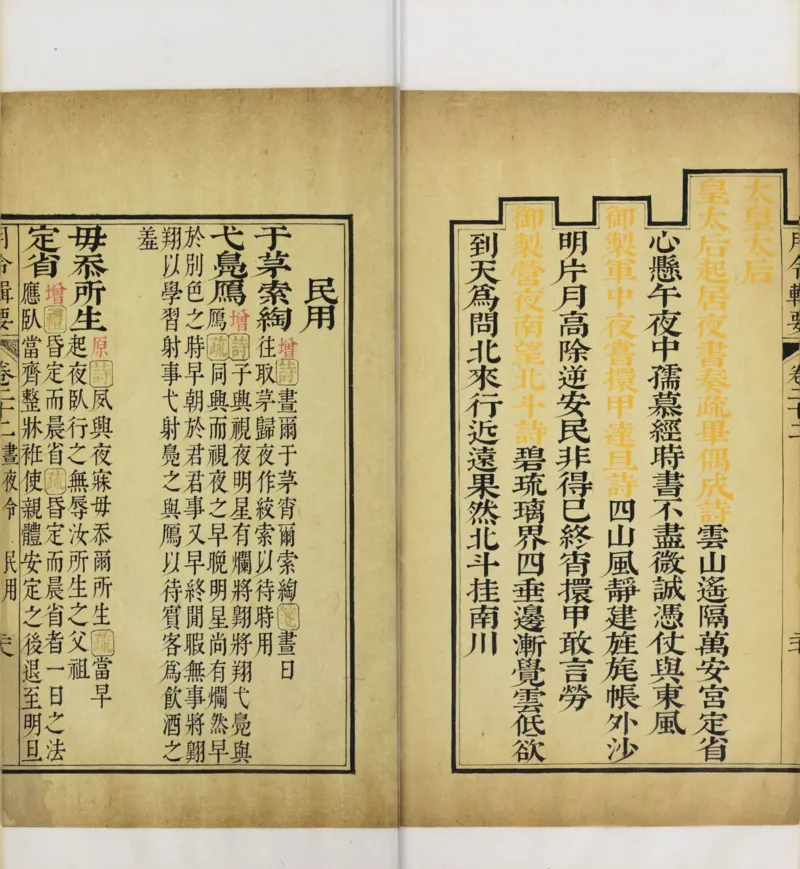 月令輯要 卷二十二
太皇太后
皇太后起居夜書奏疏畢偶成詩雲山遙隔萬安宮定省
心懸午夜中孺慕經時書不盡微誠憑仗與東風
御製軍中夜嘗擐甲達旦詩四山風靜建旌旄帳外沙
明片月高除逆安民非得已終宵擐甲敢言勞
御製營夜南望北斗詩碧琉璃界四垂邊漸覺雲低欲
到天爲問北來行近遠果然北斗挂南川
民用
于茅索綯增詩晝爾于茅宵爾索綯箋晝日
往取茅歸夜作絞索以待時用
弋鳧鴈增詩子興視夜明星有爛將翺將翔弋鳧與
鴈疏同興而視夜之早晚明星尚有爛然早
於別色之時早朝於君君事又早終閒暇無事將翺
翔以學習射事弋射鳧之與鴈以待賓客爲飲酒之
羞
毋忝所生原詩夙興夜寐毋忝爾所生疏當早
起夜臥行之無辱汝所生之父祖
定省增禮昏定而晨省疏昏定而晨省者一日之法
應臥當齊整牀衽使親體安定之後退至明旦
月令輯要 卷二十二 晝夜令 民用